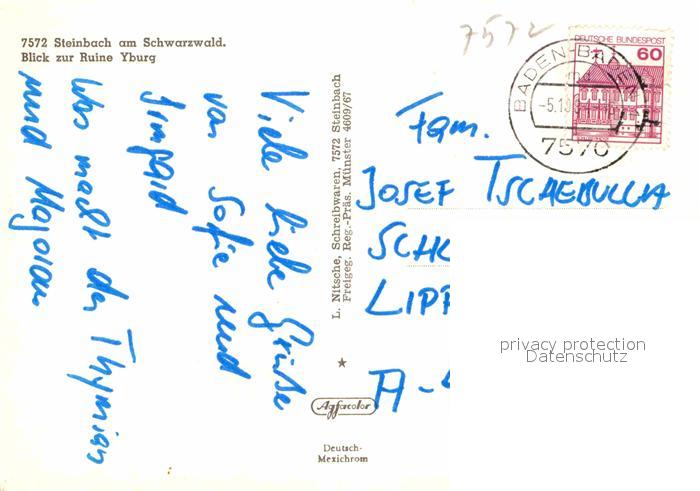 7572 Steinbach am Schwarzwald.
Blick zur Ruine Yburg
Viele liebe Grüße
von Sofie und
Was macht der Thymian
und Majoran
L. Nitsche, Schreibwaren, 7572 Steinbach
Freigeg. Reg.-Präs. Münster 4609/67
Agfacolor
Deutsch-
Mexichrom
7572
DEUTSCHE BUNDESPOST
60
BADEN-BADEN
-5.1
7570
Fam.
JOSEF TSCHEBULLA
SCH
LIPP
A-
privacy protection
Datenschutz